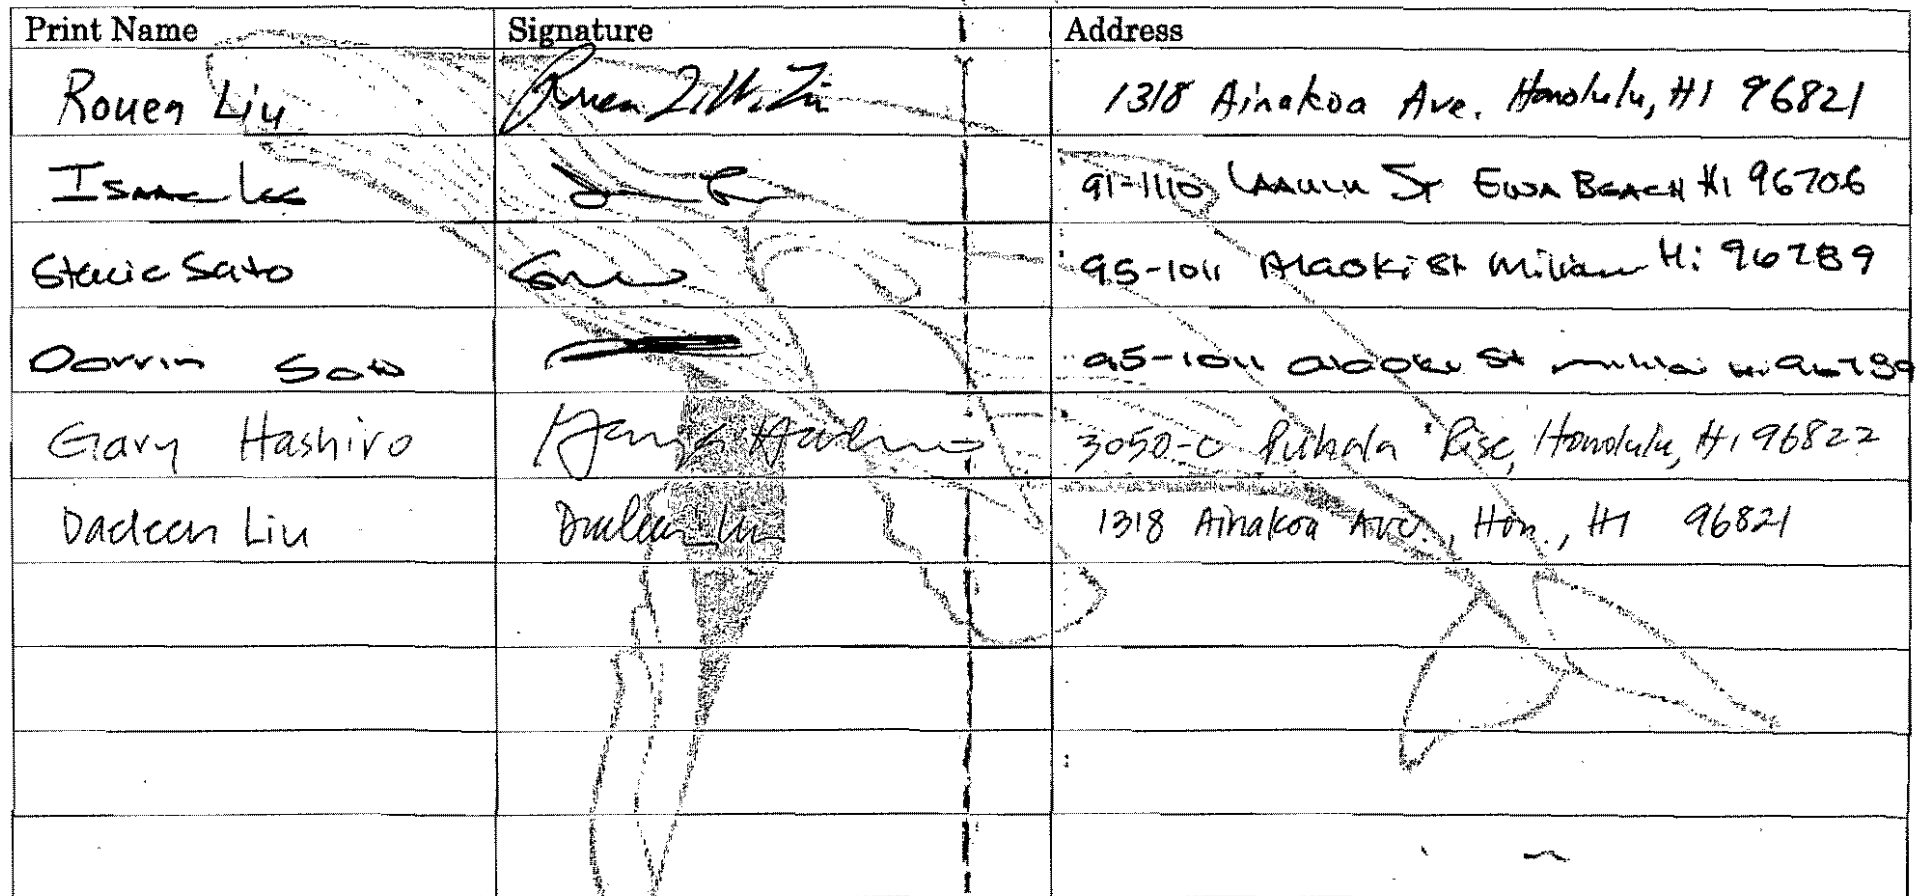 Print Name Signature Address
Rouen Liu Rouen Q. W. Liu 1318 Ainakoa Ave. Honolulu, HI 96821
Isaac Lee 91-1110 Laaulu St Ewa Beach HI 96706
Stacie Sato 95-1011 Alaoki St Hi 96789
Darrin Sato 95-1011 alaoki St Hi 96789
Gary Hashiro Gary Hashiro 3050-C Puhala Rise, Honolulu, HI 96822
Dadeen Liu Dadeen Liu 1318 Ainakoa Ave., Hon., HI 96821